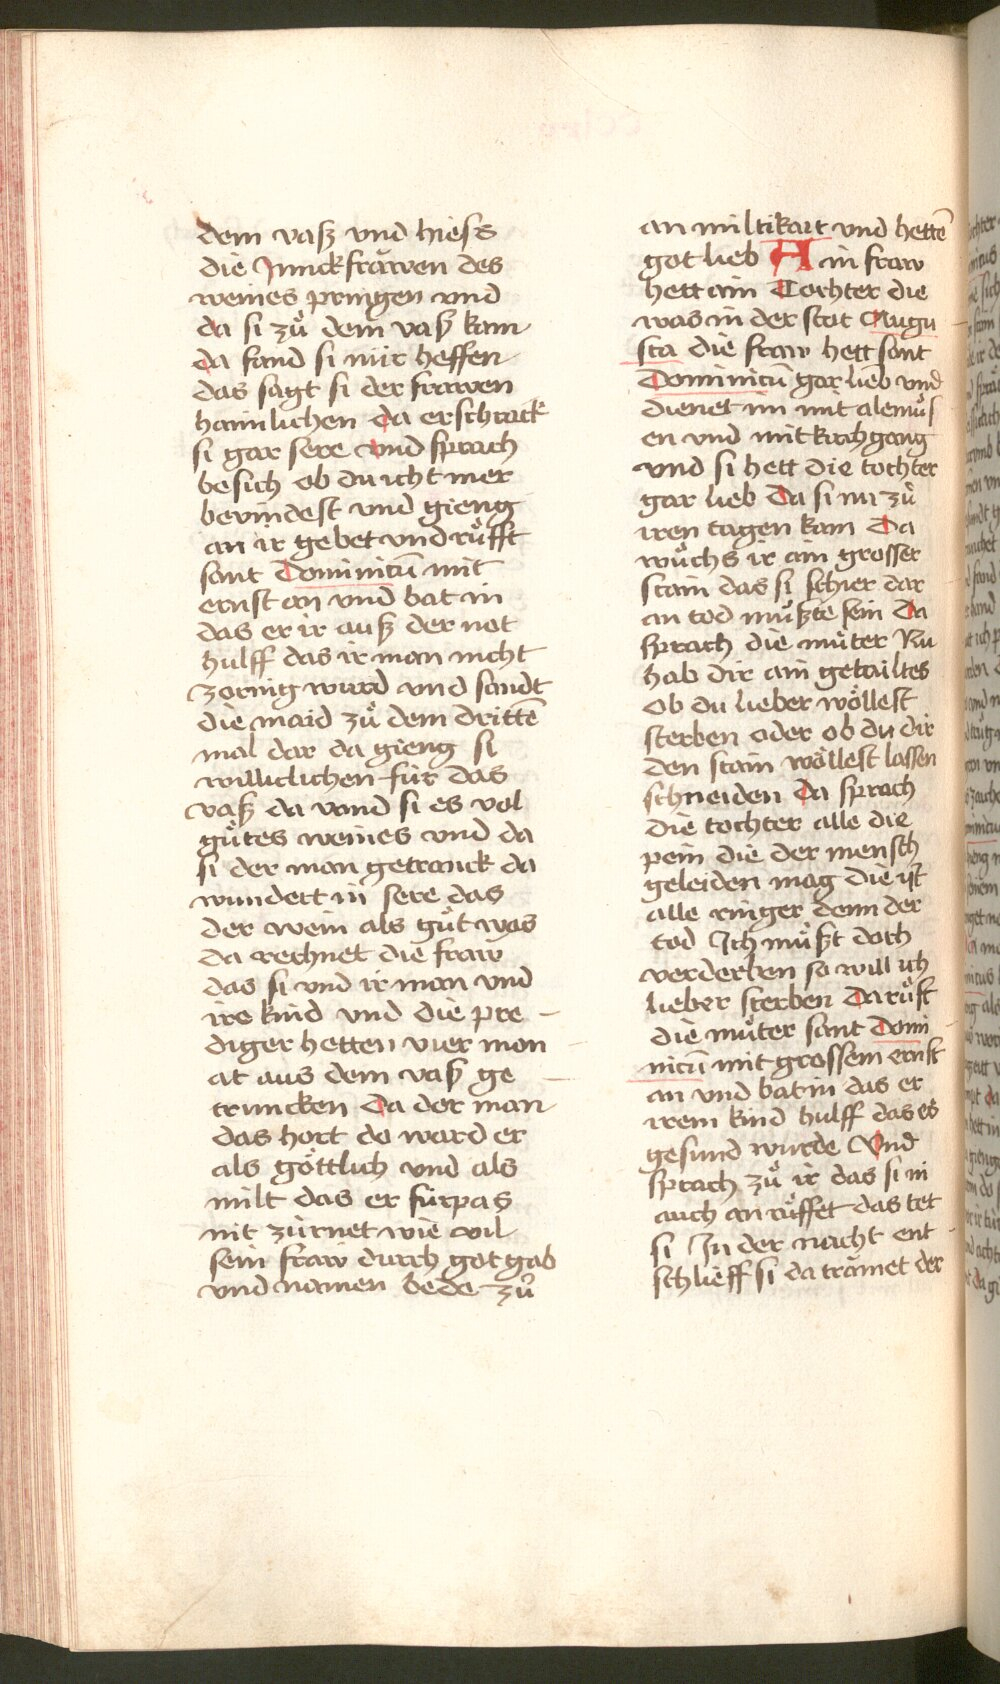 dem vasz vnd hiess
die Junckfräwen des
weines pringen vnd
da si zů dem vasz kam
da fand si nür heffen
das sagt si der frawen
haimlichen da erschrack
si gar sere vnd sprach
besich ob du icht mer
bevindest vnd gieng
an ir gebet vnd růfft
sant Dominicū mit
ernst an vnd bat in
das er ir ausz der not
hulff das ir man nicht
zornig wurd vnd sandt
die maid zů dem drittē
mal dar da gieng si
williclichen für das
vasz da vand si es vol
gůtes weines vnd da
si der man getranck da
wundert in sere das
der wein als gůt was
da rechnet die fraw
das si vnd ir man vnd
ire kind vnd die pre
diger hetten vier mon
at aus dem vasz ge
truncken da der man
das hort do ward er
als göttlich vnd als
milt das er fürpas
nit zürnet wie vil
sein fraw durch got gab
vnd namen bede zů
an miltikait vnd hettē
got lieb Ain fraw
hett ain Tochter die
was in der stat Augu
sta die fraw hett sant
Dominicū gar lieb vnd
dienet im mit alemůs
en vnd mit kirchgang
vnd si hett die tochter
gar lieb Da si nu zů
iren tagen kam Da
wůchs ir ain grosser
stain das si schier dar
an tod můszte sein Da
sprach die můter Nu
hab dir ain getailtes
ob du lieber wöllest
sterben oder ob du dir
den stain wöllest lassen
schneiden da sprach
die tochter alle die
pein die der mensch
geleiden mag die ist
alle ringer denn der
tod Ich můszt doch
verderben so will ich
lieber sterben Da růft
die můter sant Domi
nicū mit grossem ernst
an vnd bat in das er
irem kind hulff das es
gesund wurde Vnd
sprach zů ir das si in
auch an růffet das tet
si In der nacht ent
schlieff si da trämet der